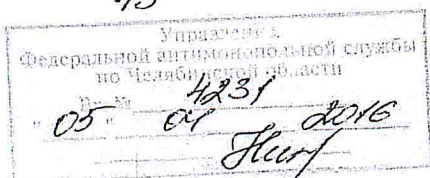 Управление
Федеральной антимонопольной службы
по Челябинской области
Вх. № 4231
"05" 04 2016